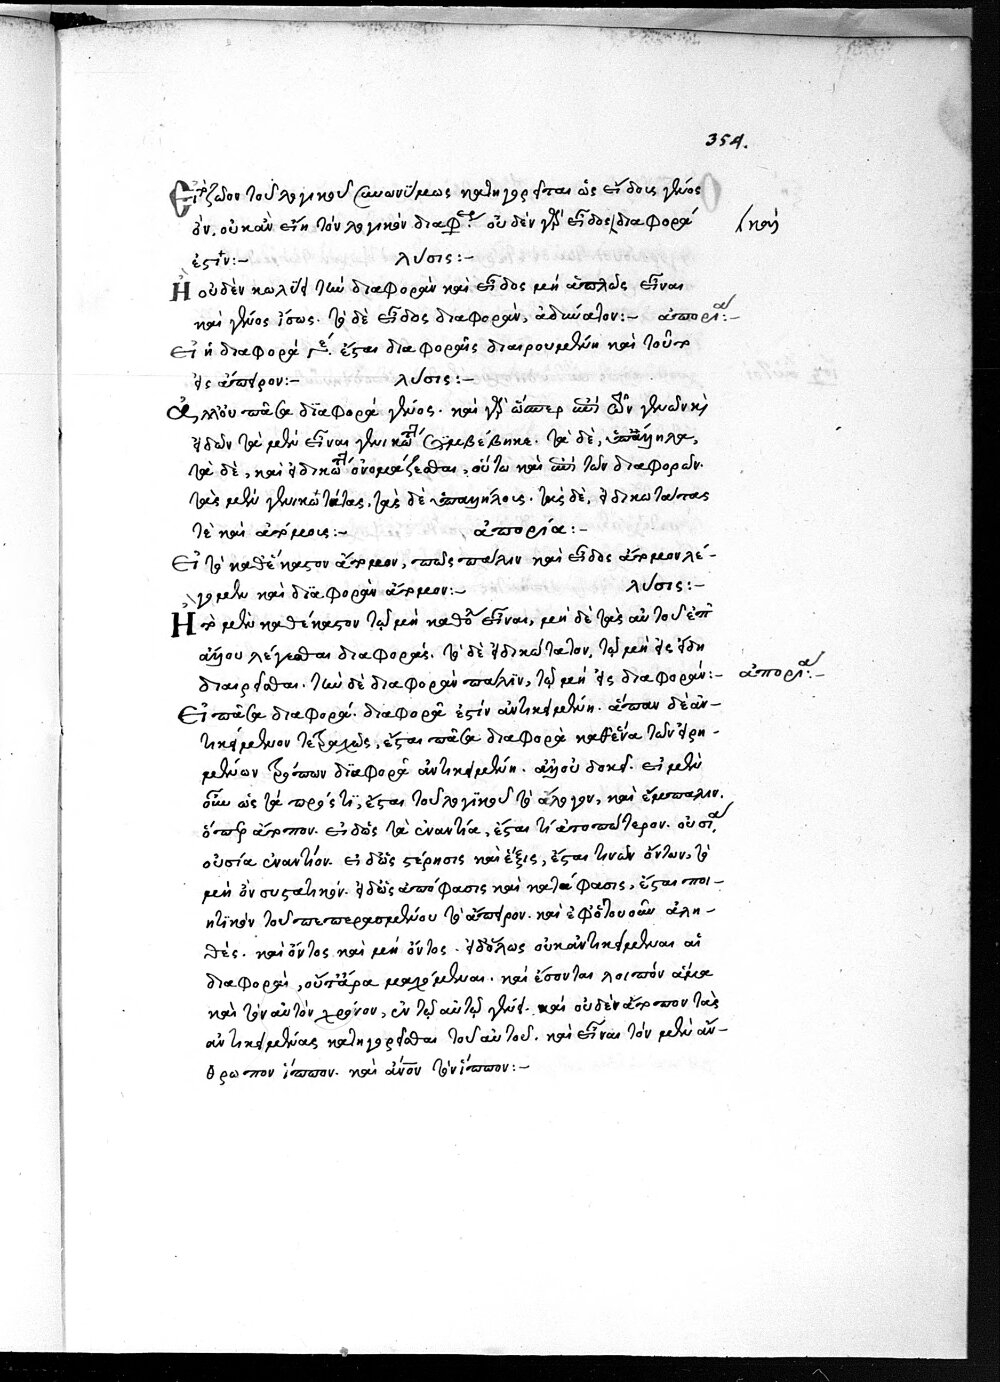 354.
Εἰ τὸ ζῶον τοῦ λογικοῦ συνωνύμως κατηγορεῖται ὡς εἴδους γένος
ὄν, οὐκ ἂν εἴη τὸν λογικὸν διαφορά. οὐδὲν γὰρ εἶδος / διαφορά (καὶ
ἐστίν:— λύσις:—
Ἢ οὐδὲν κωλύει τὴν διαφορὰν καὶ εἶδος μὴ ἁπλῶς εἶναι
καὶ γένος ἴσως. τὸ δὲ εἶδος διαφορὰν, ἀδύνατον:— ἀπορία:—
Εἰ ἡ διαφορὰ ἔσται διαφοραῖς διαιρουμένη καὶ τοῦτο
εἰς ἄπειρον:— λύσις:—
Ἀλλ' οὐ πᾶσα διαφορὰ γένος. καὶ γὰρ ὥσπερ ἐπὶ τῶν γενῶν καὶ
εἰδῶν τὰ μὲν εἶναι γενικώτατα συμβέβηκε. τὰ δὲ, ὑπάλληλα,
τὰ δὲ, καὶ εἰδικώτατα ὀνομάζεσθαι, οὕτω καὶ ἐπὶ τῶν διαφορῶν.
τὰς μὲν γενικωτάτας, τὰς δὲ ὑπαλλήλους. τὰς δὲ, εἰδικωτάτας
τὲ καὶ ἀτόμους:— ἀπορία:—
Εἰ τὸ καθέκαστον ἄτομον, πῶς πάλιν καὶ εἶδος ἄτομον λέ-
γομεν καὶ διαφορὰν ἄτομον:— λύσις:—
Ἢ τὸ μὲν καθέκαστον τῷ μὴ καθ' οὗ εἶναι, μὴ δὲ τὰς αὐτοῦ ἐπ'
ἄλλου λέγεσθαι διαφοράς. τὸ δὲ εἰδικώτατον, τῷ μὴ εἰς εἴδη
διαιρεῖσθαι. τὴν δὲ διαφορὰν πάλιν, τῷ μὴ εἰς διαφοράν:— ἀπορία:—
Εἰ πᾶσα διαφορὰ. διαφορᾶ ἐστίν ἀντικειμένη. ἅπαν δὲ ἀν-
τικείμενον τετραχῶς, ἔσται πᾶσα διαφορὰ καθ' ἕνα τῶν εἰρη-
μένων τρόπων διαφορᾶ ἀντικειμένη. ἀλλ' οὐ δοκεῖ. εἰ μὲν
οὖν ὡς τὰ πρός τι, ἔσται τοῦ λογικοῦ τὸ ἄλογον, καὶ ἔμπαλιν.
ὅπερ ἄτοπον. εἰ δ' ὡς τὰ ἐναντία, ἔσται τί ἀτοπώτερον. οὐσία
οὐσία ἐναντίον. εἰ δ' ὡς στέρησις καὶ ἕξις, ἔσται τινῶν ὄντων, τὸ
μὴ ὂν συστατικόν. εἰ δ' ὡς ἀπόφασις καὶ κατάφασις, ἔσται ποι-
ητικὸν τοῦ πεπερασμένου τὸ ἄπειρον. καὶ ἐφ' ὅτου οὖν ἀλη-
θές. καὶ ὄντος καὶ μὴ ὄντος. εἰ δ' ὅλως οὐκ ἀντικείμεναι αἱ
διαφοραὶ, οὔτ' ἄρα μαχόμεναι. καὶ ἔσονται λοιπὸν ἅμα
κατὰ τὸν αὐτὸν χρόνον, ἐν τῷ αὐτῷ γένει. καὶ οὐδὲν ἄτοπον τὰς
ἀντικειμένας κατηγορεῖσθαι τοῦ αὐτοῦ. καὶ εἶναι τὸν μὲν ἄν-
θρωπον ἵππον. καὶ ἄνον τὸν ἵππον:—